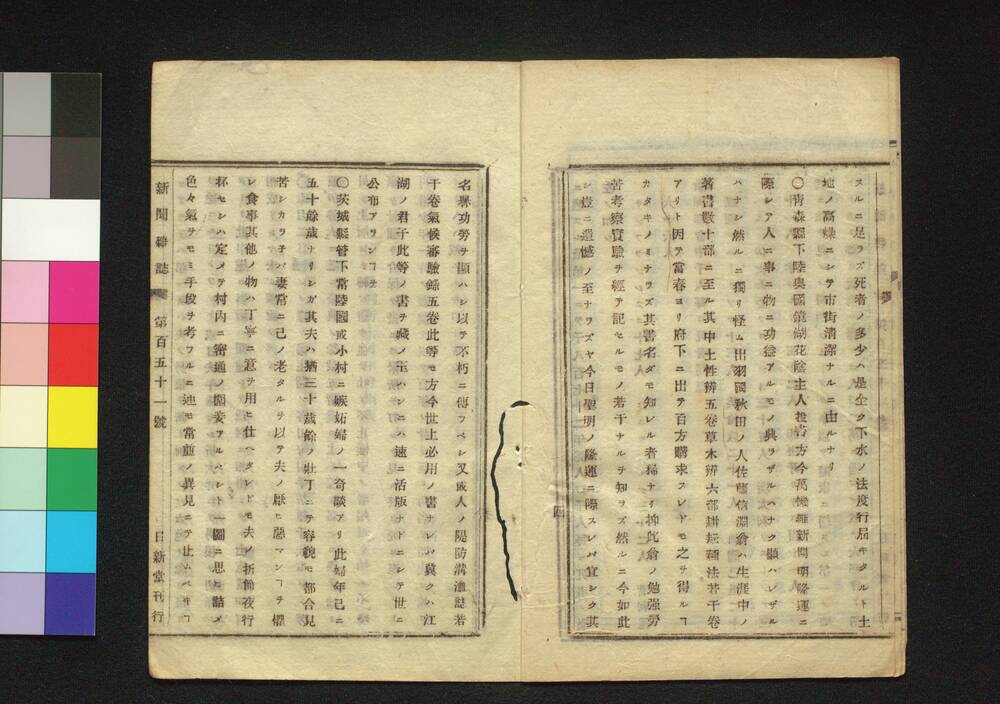 スルニ足ラズ死者ノ多少ハ是全ク下水ノ法度行屆キタルト土
地ノ高燥ニシテ市街清潔ナルニ由ルナリ
〇靑森縣下陸奥國鏡湖花陰主人投書方今萬機維新開明隆運ニ
際シテ人ニ事ニ物ニ功益アルモノ興ラザルハナク顯ハレザル
ハナシ然ルニ獨リ怪ム出羽國秋田ノ人佐藤信淵翁ハ生涯中ノ
著書數十部ニ至ル其中土性辨五卷草木辨六部耕耘種法若干卷
アリト因テ當春ヨリ府下ニ出テ百方購求スレドモ之ヲ得ルヿ
カタキノミナラズ其書名ダモ知レル者稀ナリ抑此翁ノ勉强勞
苦考察實驗ヲ經テ記セルモノ若干ナルヲ知ラズ然ルニ今如此
シ豈ニ遺憾ノ至ナラズヤ今日聖明ノ隆運ニ際スレバ宜シク其
四
名譽功勞ヲ顯ハシ以テ不朽ニ傳フベシ又或人ノ隄防溝洫誌若
干卷氣候審驗錄五卷此等モ方今世上必用ノ書ナレバ冀クハ江
湖ノ君子此等ノ書ヲ藏メ玉ハンニハ速ニ活版ナドニシテ世ニ
公布アリンヿヲ
〇茨城縣管下常陸國或小村ニ嫉妬婦ノ一奇談アリ此婦年已ニ
五十餘歲ナリシガ其夫ハ猶三十歲餘ノ壯丁ニテ容貌モ都合見
苦シカラチバ妻常ニ己ノ老タルヲ以テ夫ノ厭ヒ惡マンヿヲ懼
レ食事其他ノ物ハ丁寧ニ意ヲ用ヒ仕ハタレドモ夫ノ折節夜行
杯セシハ定メテ村内ニ密通ノ圍妾アルベシト一圖ニ思ヒ詰メ
色々氣ヲモミ手段ヲ考フルニ迚モ常並ノ異見ニテ止ムベキヿ
新聞雜誌 第百五十一號 日新堂刊行